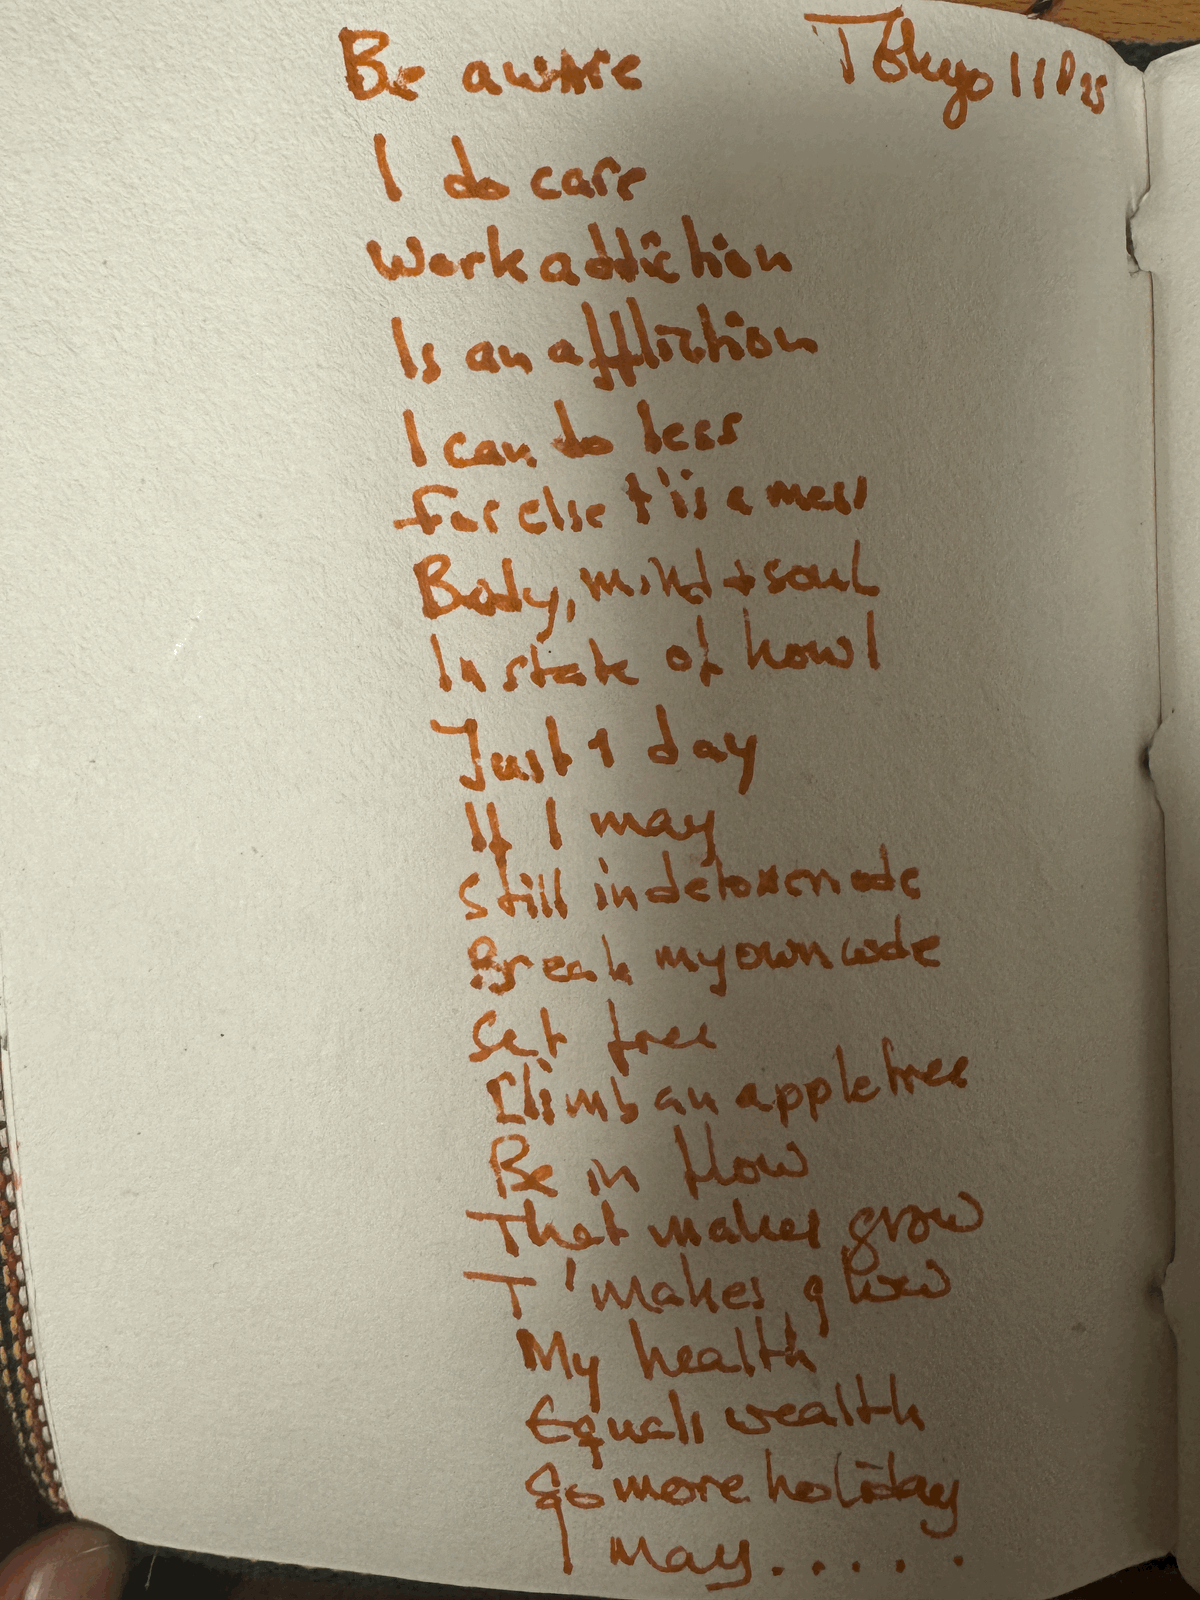 Be aware Tokyo 11 25
I do care
Work addiction
Is an affliction
I can do less
For else t'is a mess
Body, mind + soul
In state of howl
Just 1 day
If I may
Still in detoxen ode
Break my own code
Set free
Climb an apple tree
Be in flow
That makes grow
T' makes glow
My health
Equals wealth
So more holiday
I may.....